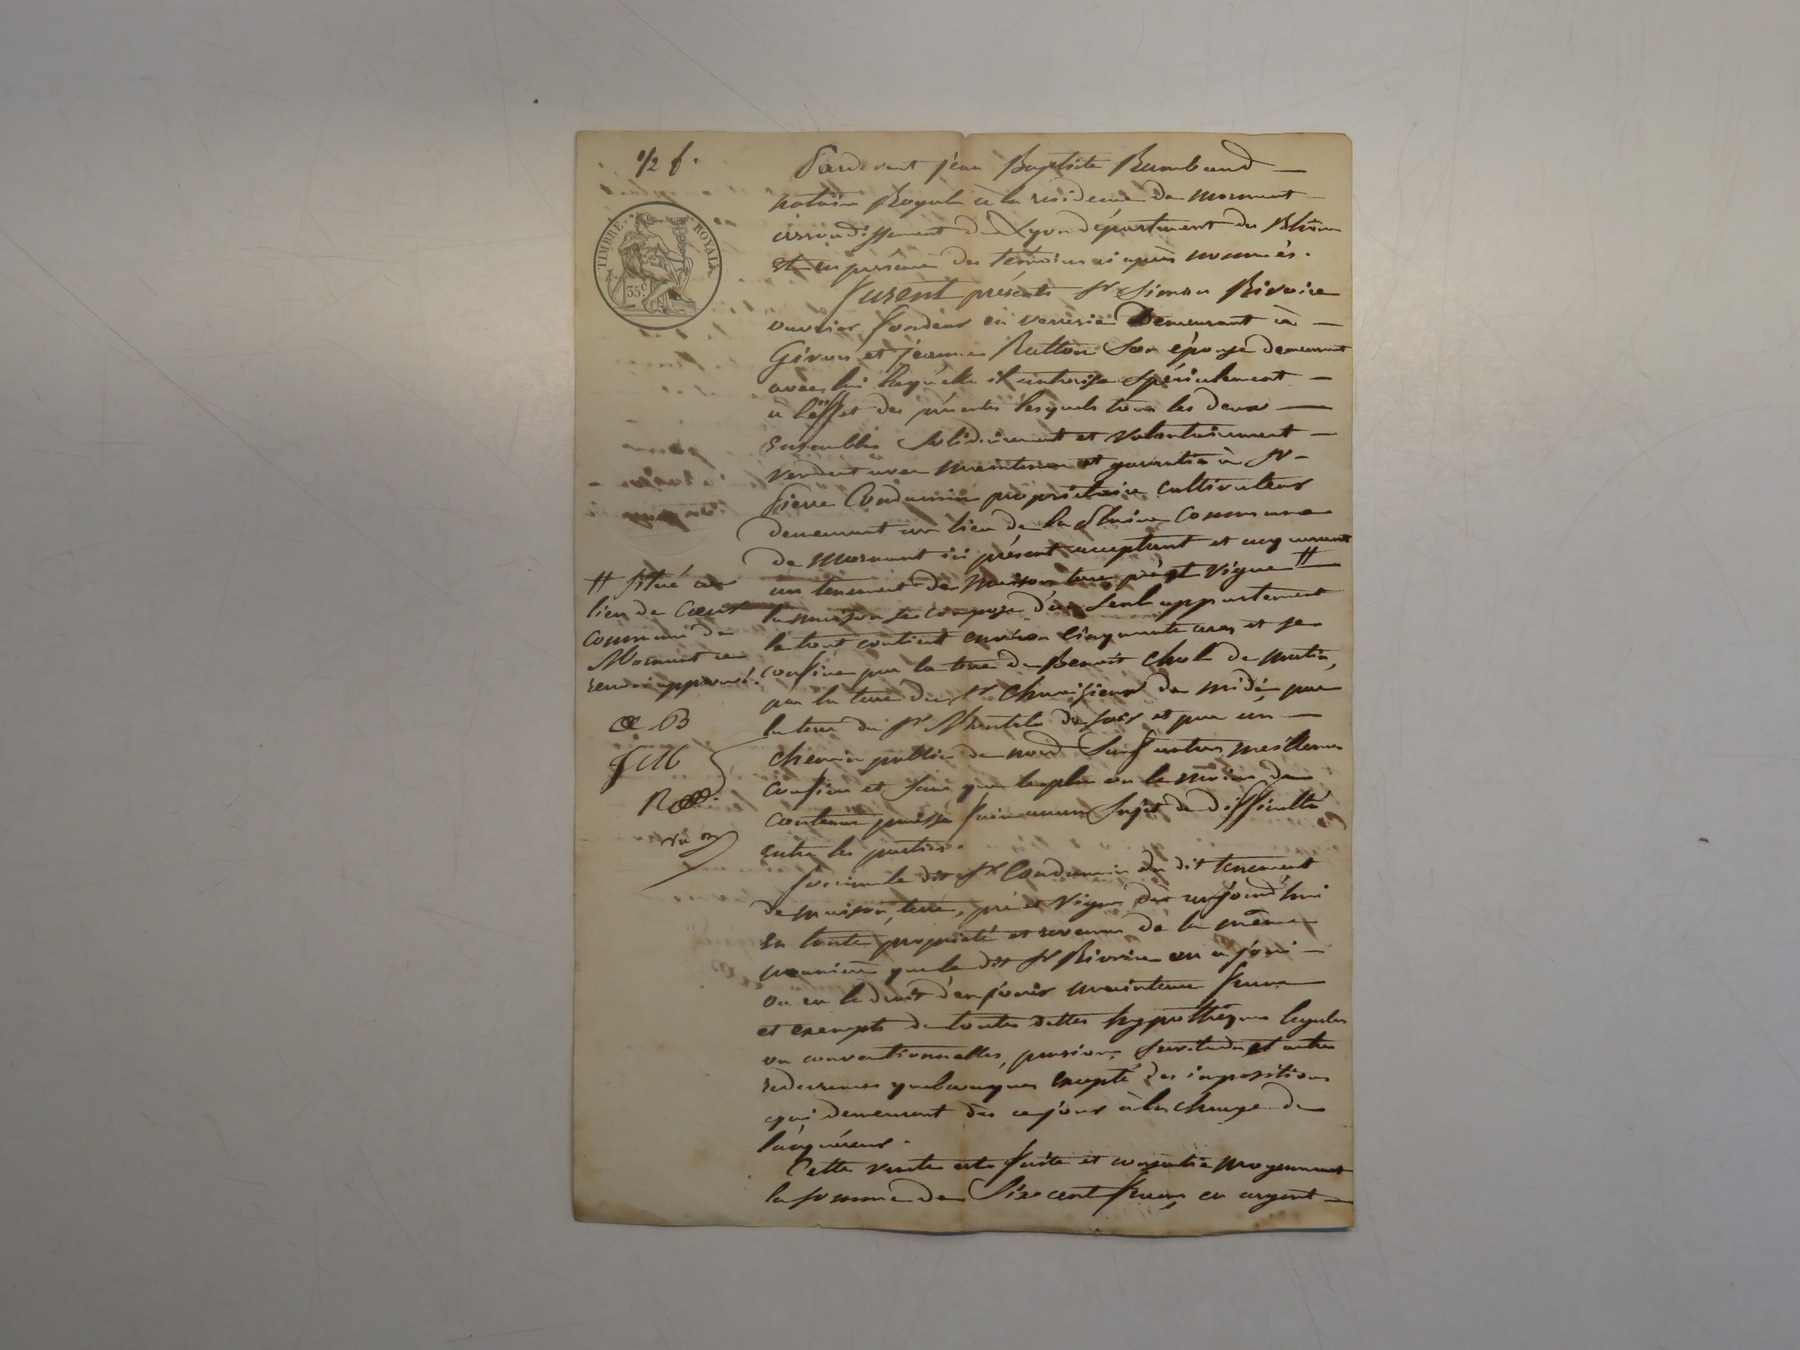 1/2 f.
TIMBRE ROYAL
35c
Pardevant jean Baptiste Rambaud
notaire Royal à la residence de mornant
arrondissement de Lyon département du Rhône
et en présence des temoins ci après nommés.
Furent présents Sr Simon Rivoire
ouvrier fondeur en verrerie Demeurant à
Givors et jeanne Ratton son épouse demeurant
avec lui laquelle il autorise spécialement
a l'effet des présentes lesquels tous les deux
ensembles solidairement et volontairement
vendent avec maintenue et garantie à Sr
Pierre Condamin propriétaire cultivateur
demeurant au lieu de la Plaine Commune
de Mornant ici présent acceptant et acquerant
un tenement de maison terre pré et vigne #
la maison se compose d'un seul appartement
le tout contient environ cinquante ares et se
confine par la terre de Benoit Chol de matin,
par la terre du Sr de midi par
la terre du Sr de soir et par un
chemin public de nord sauf autres meilleurs
confins et sans que le plus ou le moins de
contenue puisse faire aucun sujet de difficulté
entre les parties.
# situé au
lieu de
commune de
Mornant ce
renvoi approuvé.
B
R
jouira le dit Sr Condamin du dit tenement
de maison, terre, pré et vigne dès aujourd'hui
en toute propriété et revenus de la même
maniere que le dit Sr Rivoire en a joui
ou eu le droit d'en jouir maintenue franc
et exempts de toutes dettes hypothèques legales
ou conventionnelles, pension, servitudes et autres
redevances quelconques excepté des impositions
qui demeurent dès ce jour à la charge de
l'acquéreur.
Cette vente est faite et consentie moyennant
la somme de Six cent francs en argent